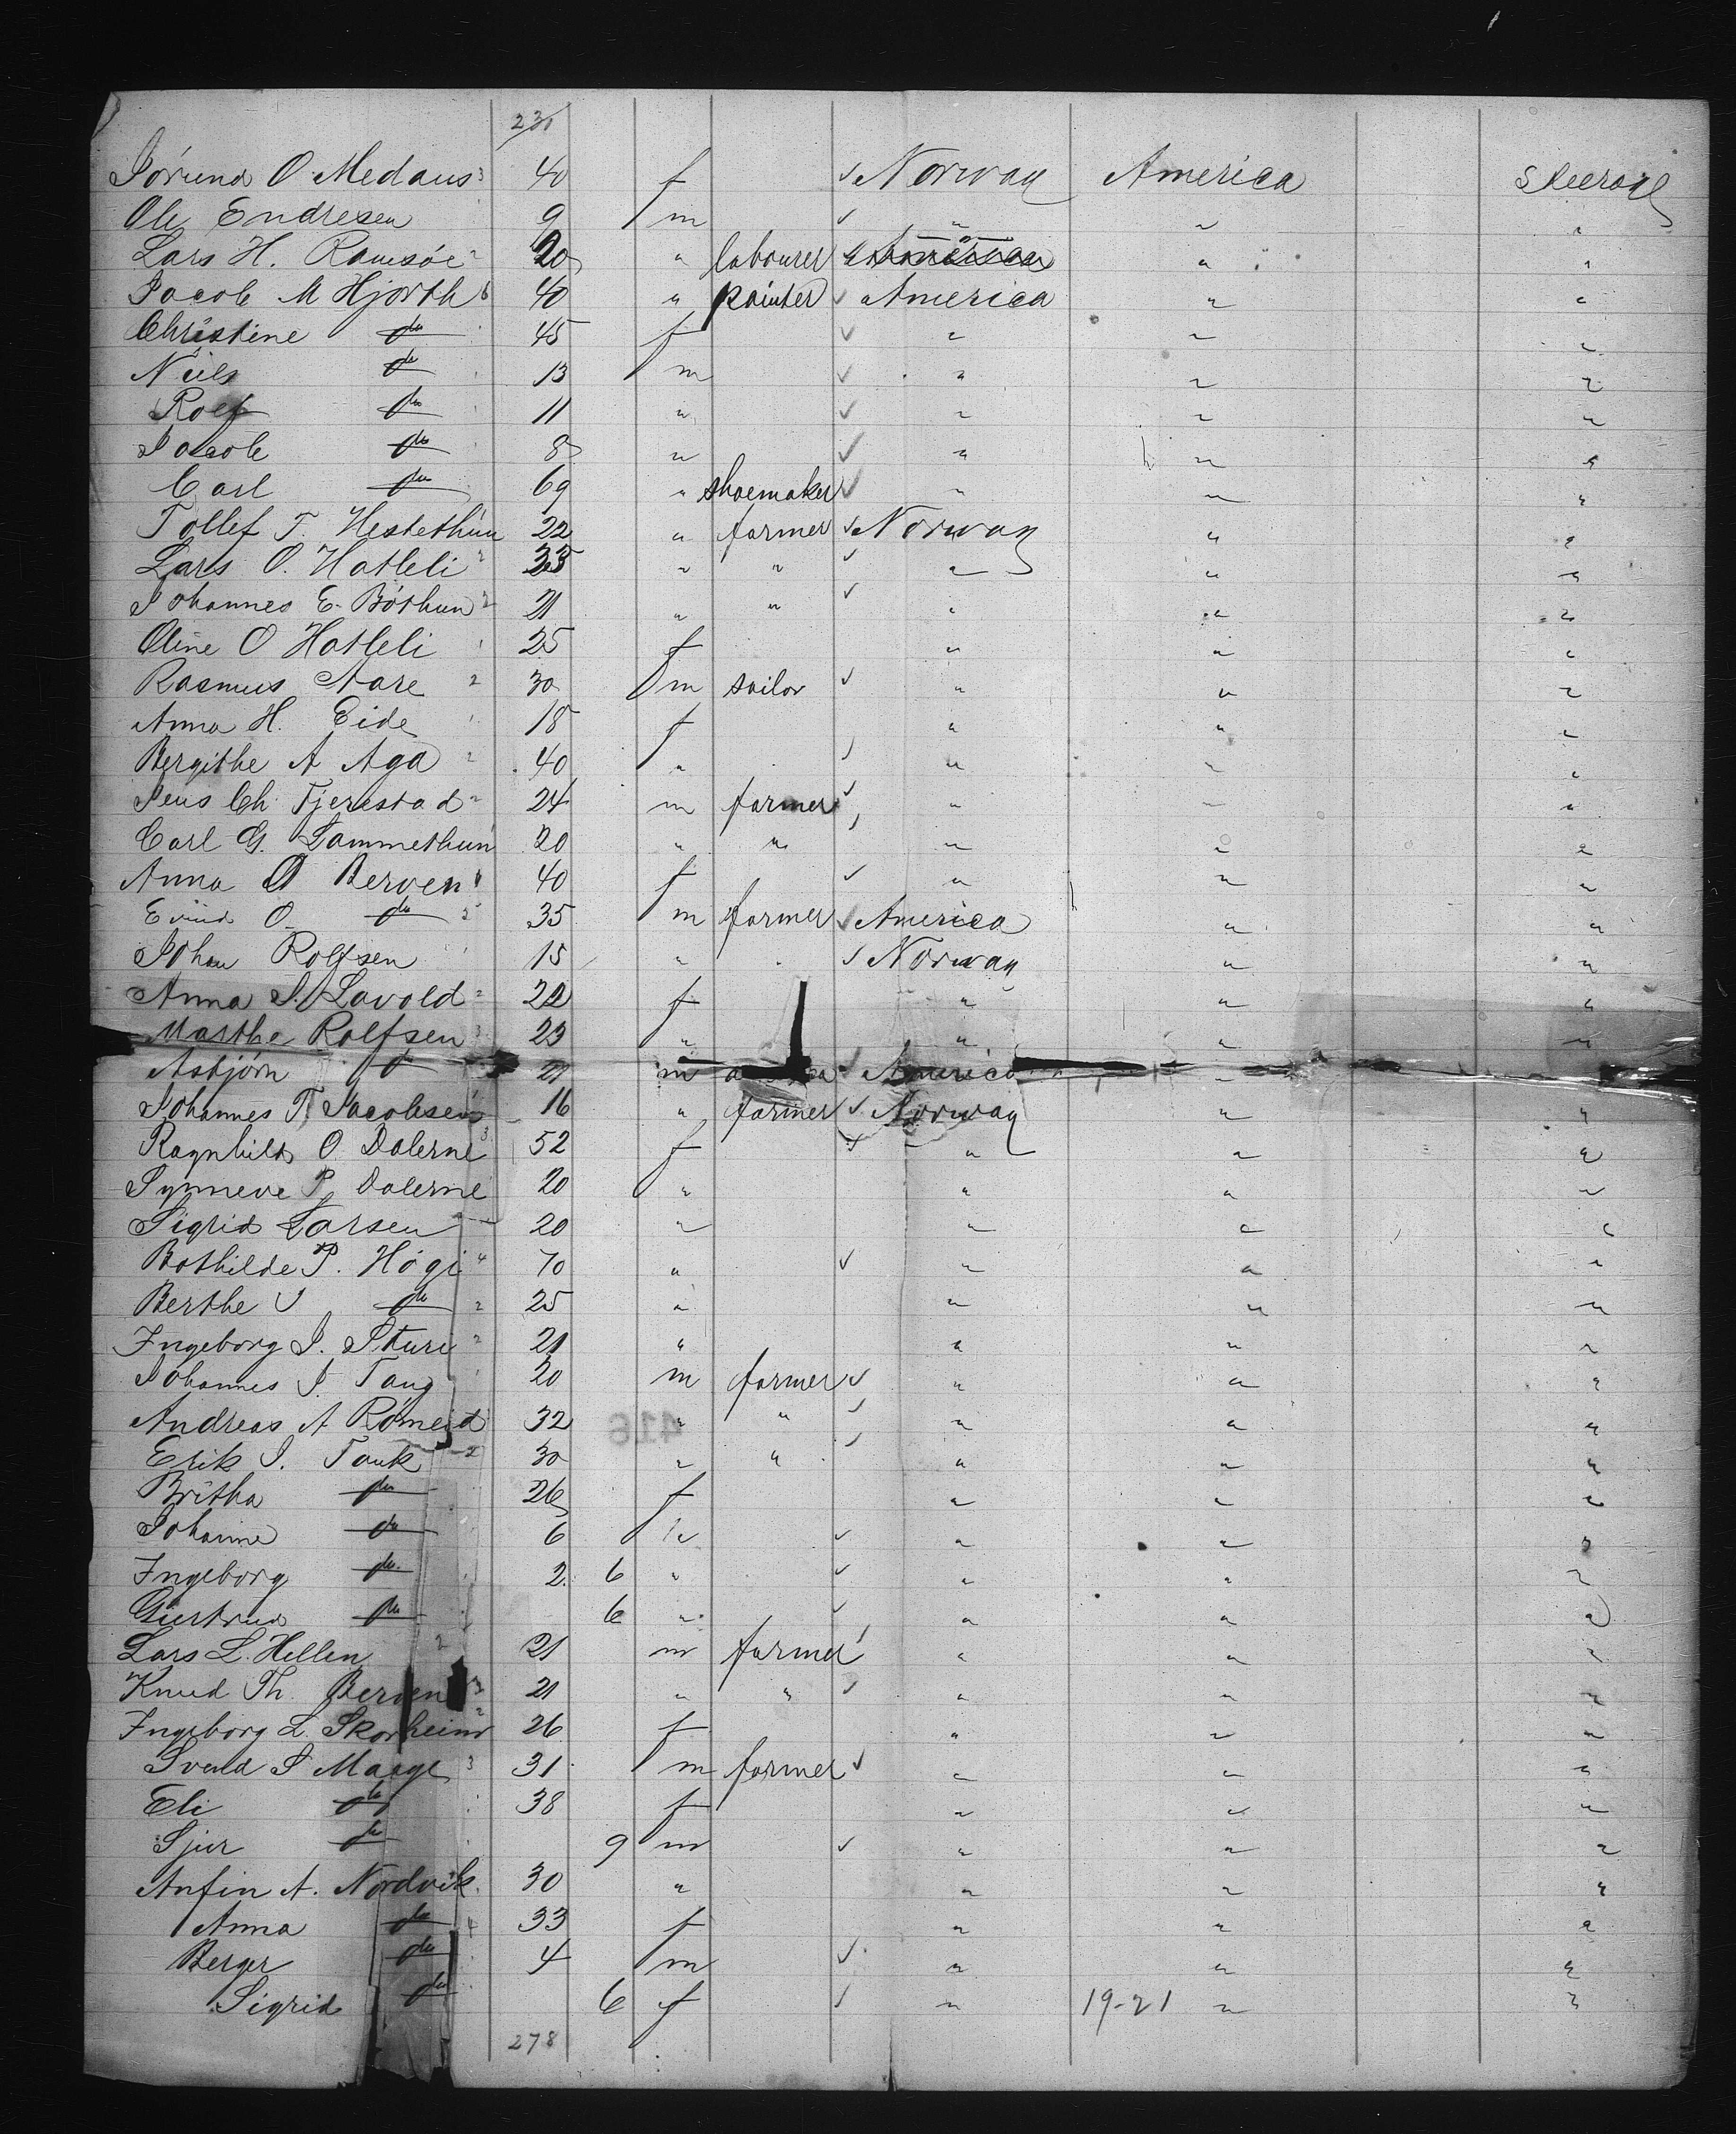 231
Jórund O Medaus 3 40 f ✓ Norway America Steerage
Ole Endresen 9 m ✓ " " "
Lars H. Ramsóe 2 20 " labourer " " "
Jacob M Hjorth 6 40 " painter ✓ America " "
Christine do 45 f ✓ " " "
Niels do 13 m ✓ " " "
Rolf do 11 " ✓ " " "
Jacob do 8 " ✓ " " "
Carl do 69 " shoemaker ✓ " " "
Tollef T. Hestethun 22 " farmer ✓ Norway " "
Lars O. Hatleli 2 " " ✓ " " "
Johannes E. Bóthun 2 21 " " ✓ " " "
Oline O Hatleli 1 25 f " " "
Rasmus Aare 2 30 m sailor ✓ " " "
Anna H. Eide 1 18 f " " "
Bergithe A Aga 2 40 " ✓ " " "
Jens Ch. Tjerestad 2 24 m farmer ✓ " " "
Carl G. Lammethun 20 " " ✓ " " "
Anna O Berven 40 f ✓ " " "
Eivind O. do 2 35 m farmer ✓ America " "
Johan Rolfsen 1 15 " ✓ Norway " "
Anna S. Lavold 2 22 f " " "
Marthe Rolfsen 3 23 " " " "
Asbjórn do 27 m ✓ America "
Johannes T. Jacobsen 16 " farmer ✓ Norway " "
Ragnhild O Dalerne 3 52 f ✓ " " "
Synneve P. Dalerne 20 " " " "
Sigrid Larsen 20 " " " "
Bothilde P. Hógi 4 70 " ✓ " " "
Berthe J do 2 25 " " " "
Ingeborg J. Sture 2 21 " " " "
Johannes J. Tang 1 20 m farmer ✓ " " "
Andreas A Rómeid 32 " " ✓ " " "
Erik J. Tauk 2 30 " " ✓ " " "
Britha do 26 f " " "
Johanne do 6 " ✓ " " "
Ingeborg do 2 6 " ✓ " " "
Giertrud do 6 " ✓ " " "
Lars L. Hellen 2 21 m farmer ✓ " " "
Knud Th. Berven 3 21 " " ✓ " " "
Ingeborg L. Skorheim 2 26 f " " "
Svend S Maage 3 31 m farmer ✓ " " "
Eli do 38 f " " "
Sjur do 9 m ✓ " " "
Anfin A. Nordvik 30 " " " "
Anna do 4 33 f " " "
Berger do 4 m ✓ " " "
Sigrid do 6 f ✓ " 19-21 " "
278
416